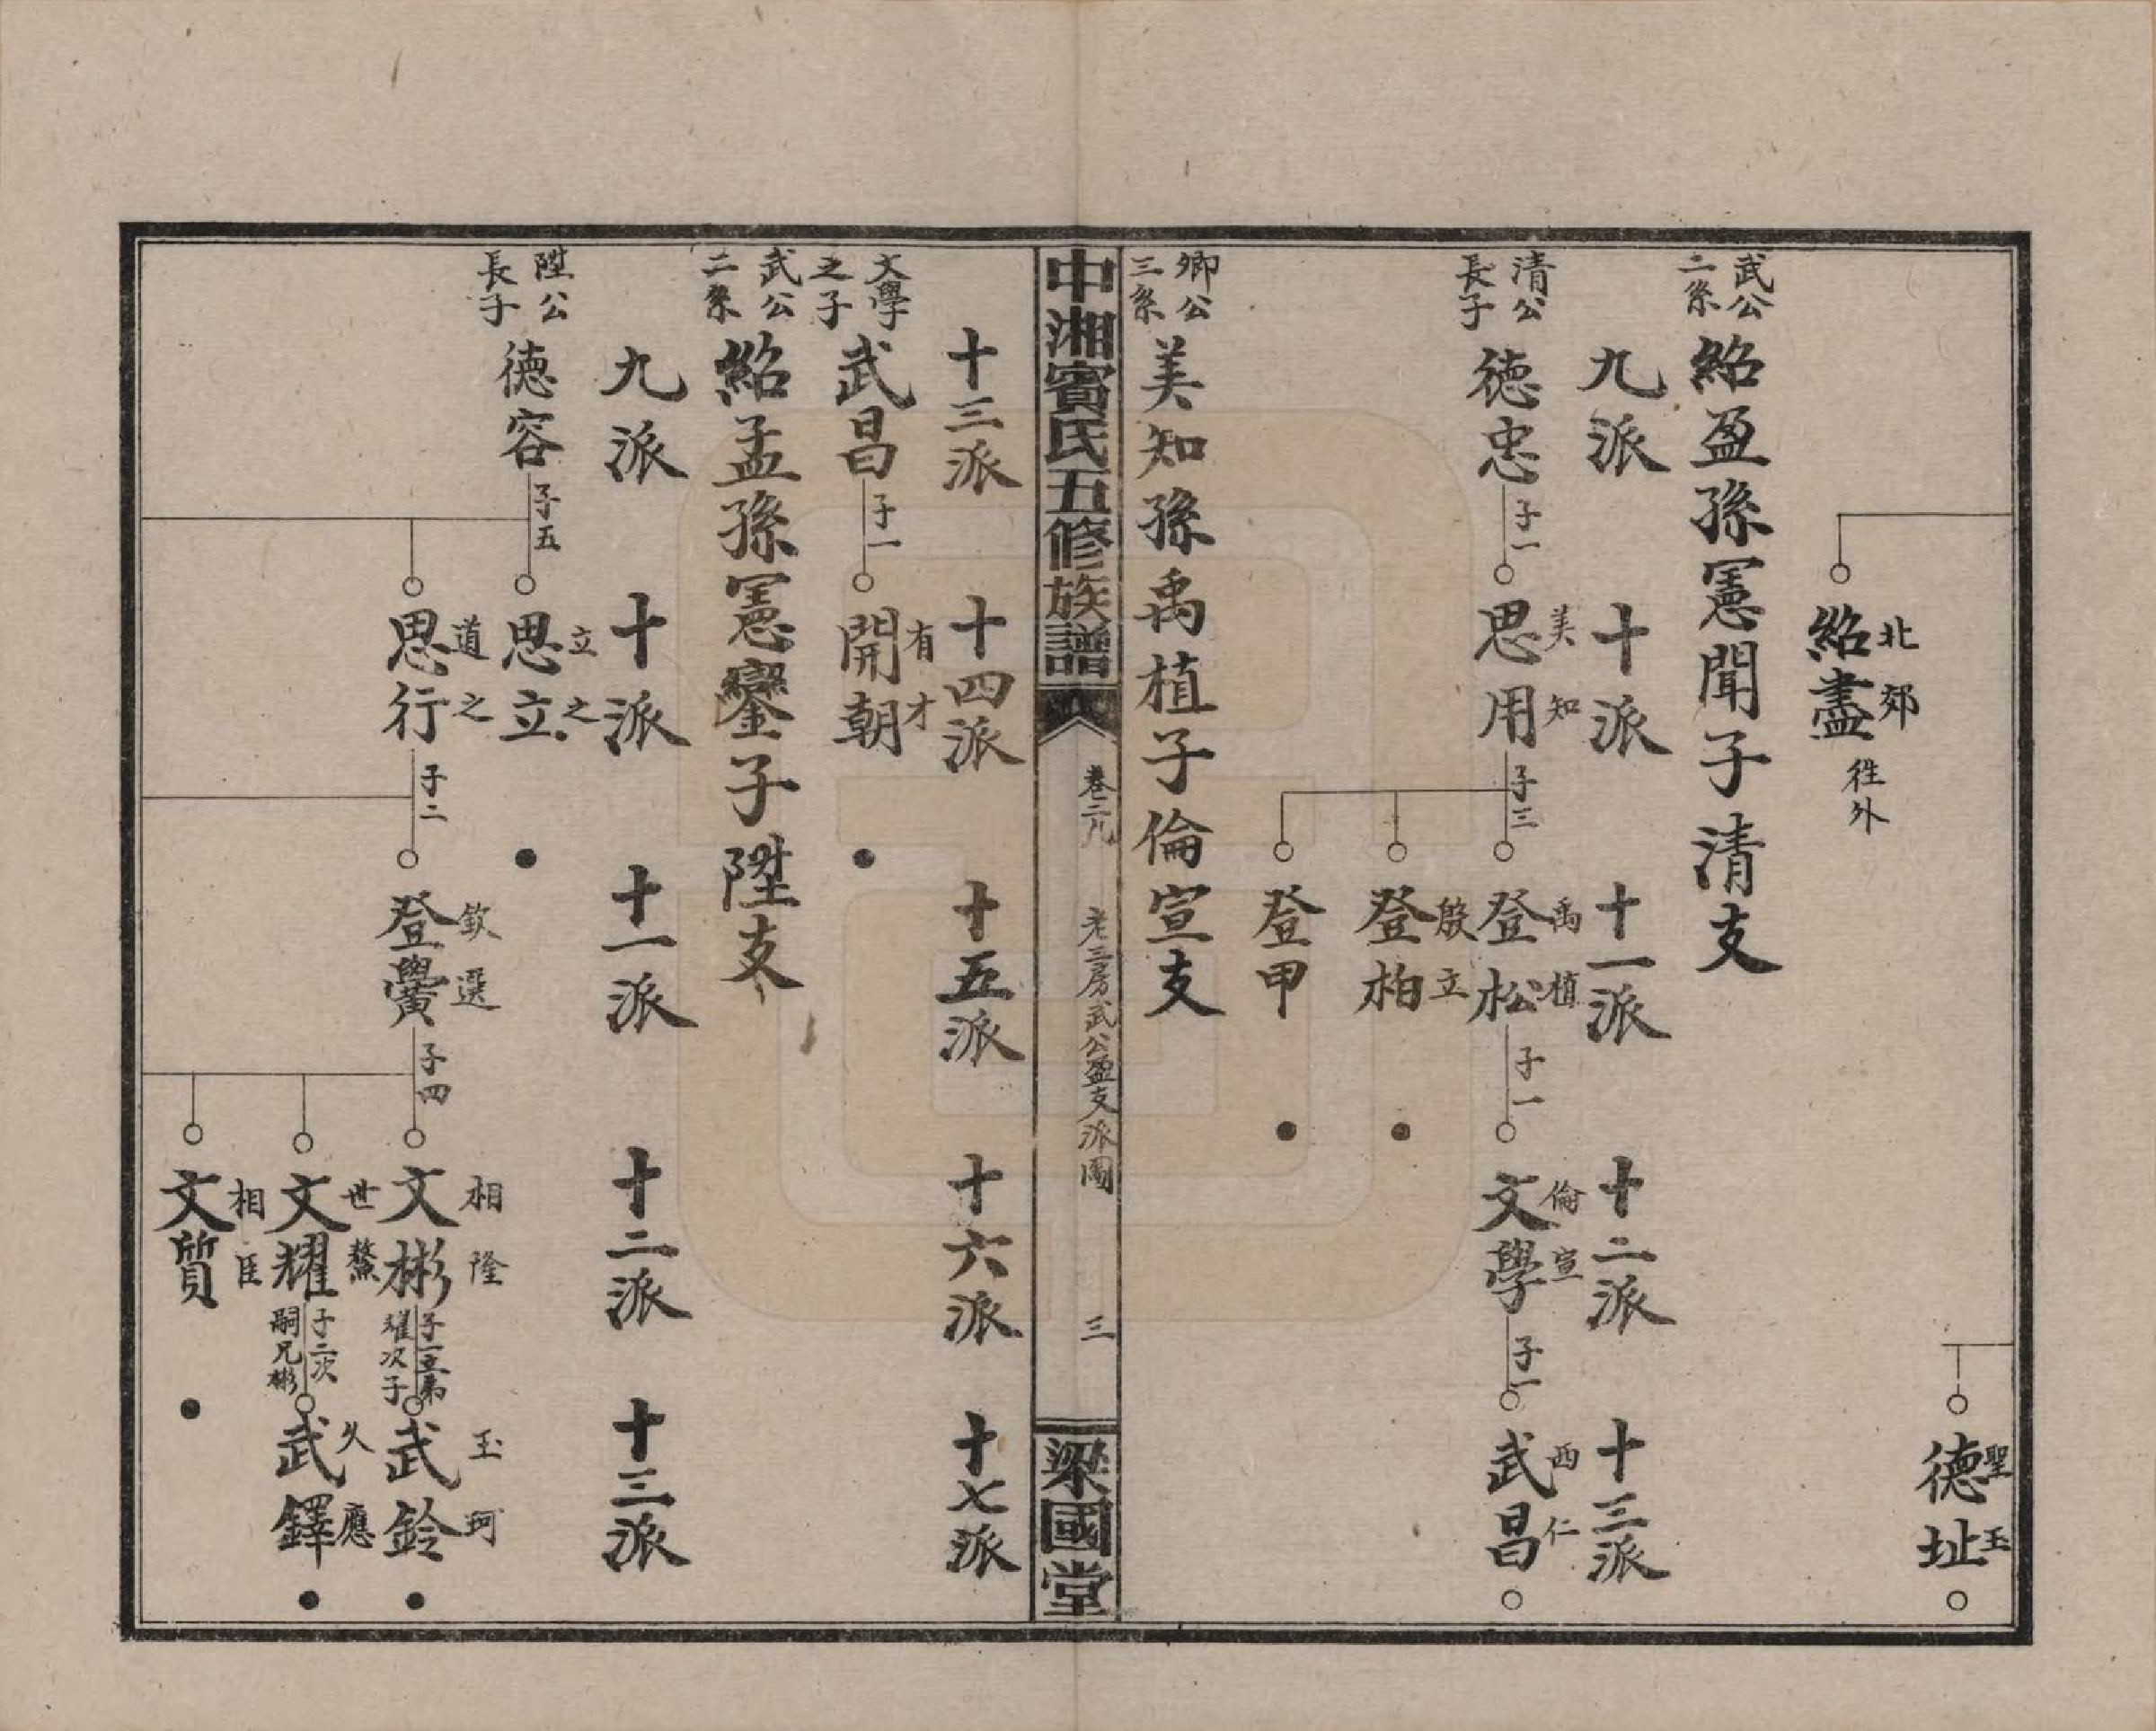 聖玉
德址
北郊
紹盡 徃外
武公二系
紹盈孫憲聞子清支
九派 十派 十一派 十二派 十三派
清公長子
德忠 子一
美知
思用 子三
禹植
登松 子一
倫宣
文學 子一
西仁
武昌
殷立
登柏
登甲
卿公三系
美知孫禹植子倫宣支
中湘賓氏五修族譜
卷二九
老三房武公盈支派圖
三
梁國堂
十三派 十四派 十五派 十六派 十七派
文學之子
武昌 子一
有才
開朝
武公二系
紹孟孫憲鑾子陞支
九派 十派 十一派 十二派 十三派
陞公長子
德容 子五
立之
思立
道之
思行 子二
欽選
登黌 子四
相隆
文彬 子一立弟耀次子
玉珂
武鈴
世鰲
文耀 子二次嗣兄彬
久應
武鐸
相臣
文質